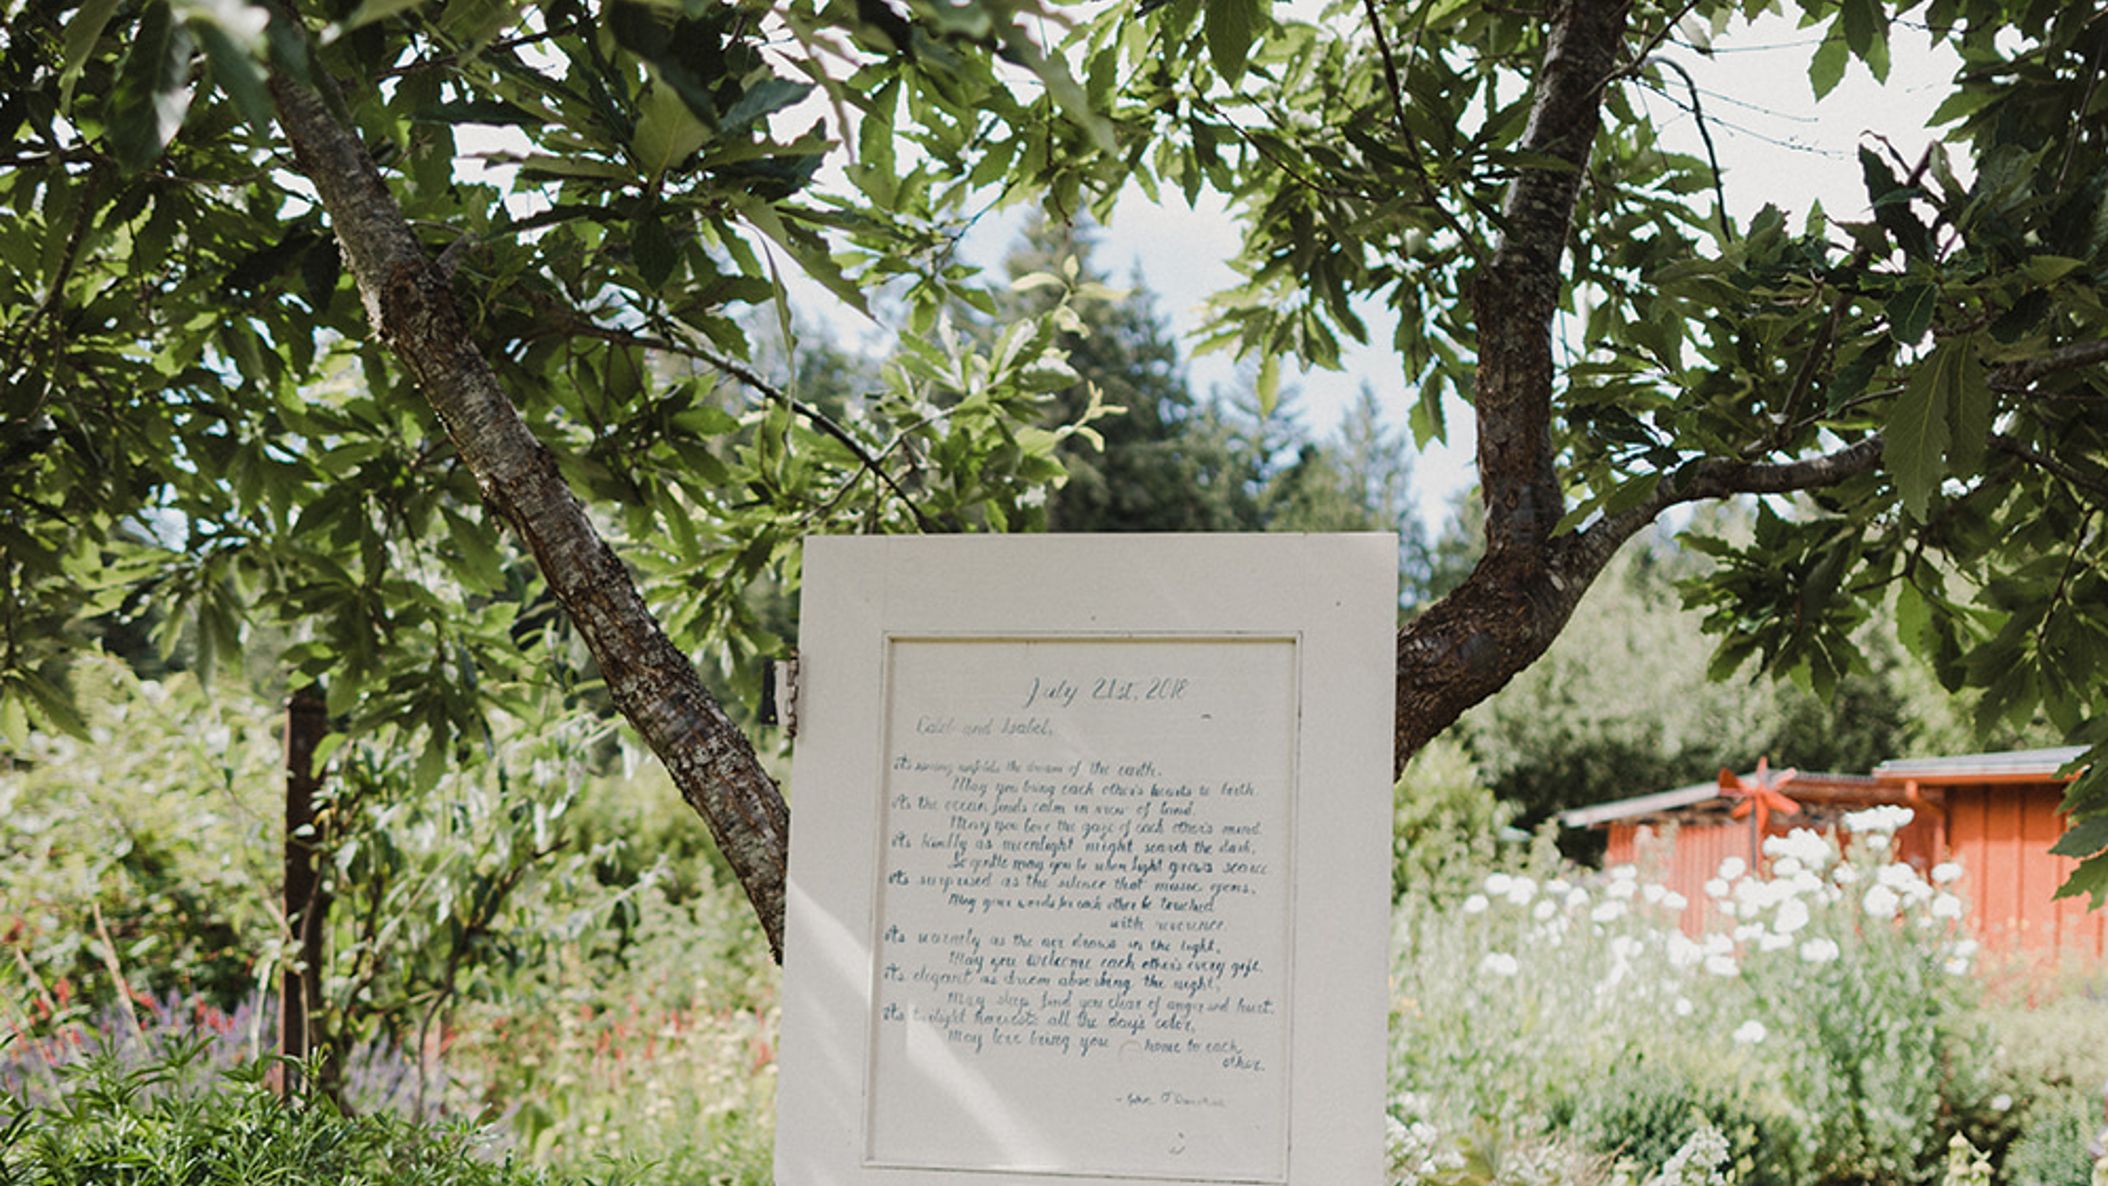 July 21st, 2018
Caleb and Isabel,
As spring unfolds the dream of the earth.
May you bring each other's hearts to birth.
As the ocean finds calm in view of land.
May you love the gaze of each other's mind.
As kindly as moonlight might search the dark,
So gentle may you be when light grows scarce
As surprised as the silence that music opens,
May your words for each other be touched
with reverence.
As warmly as the air draws in the light,
May you welcome each other's every gift.
As elegant as dream absorbing the night,
May sleep find you clear of anger and hurt.
As twilight harvests all the day's color,
May love bring you home to each
other.
- John O'Donohue